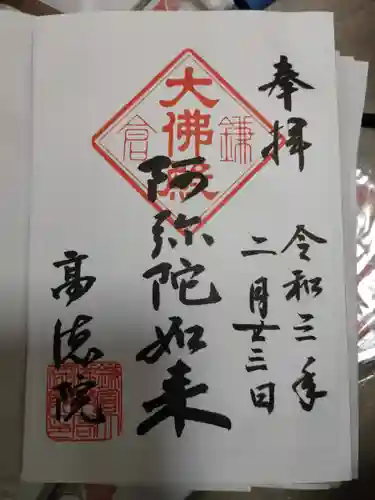 奉拝
令和三年
二月廿三日
大佛殿
鎌倉
阿弥陀如来
高徳院